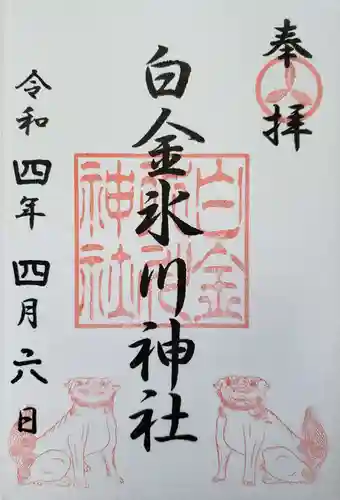 奉拝
白金氷川神社
令和四年四月六日
白金
氷川
神社